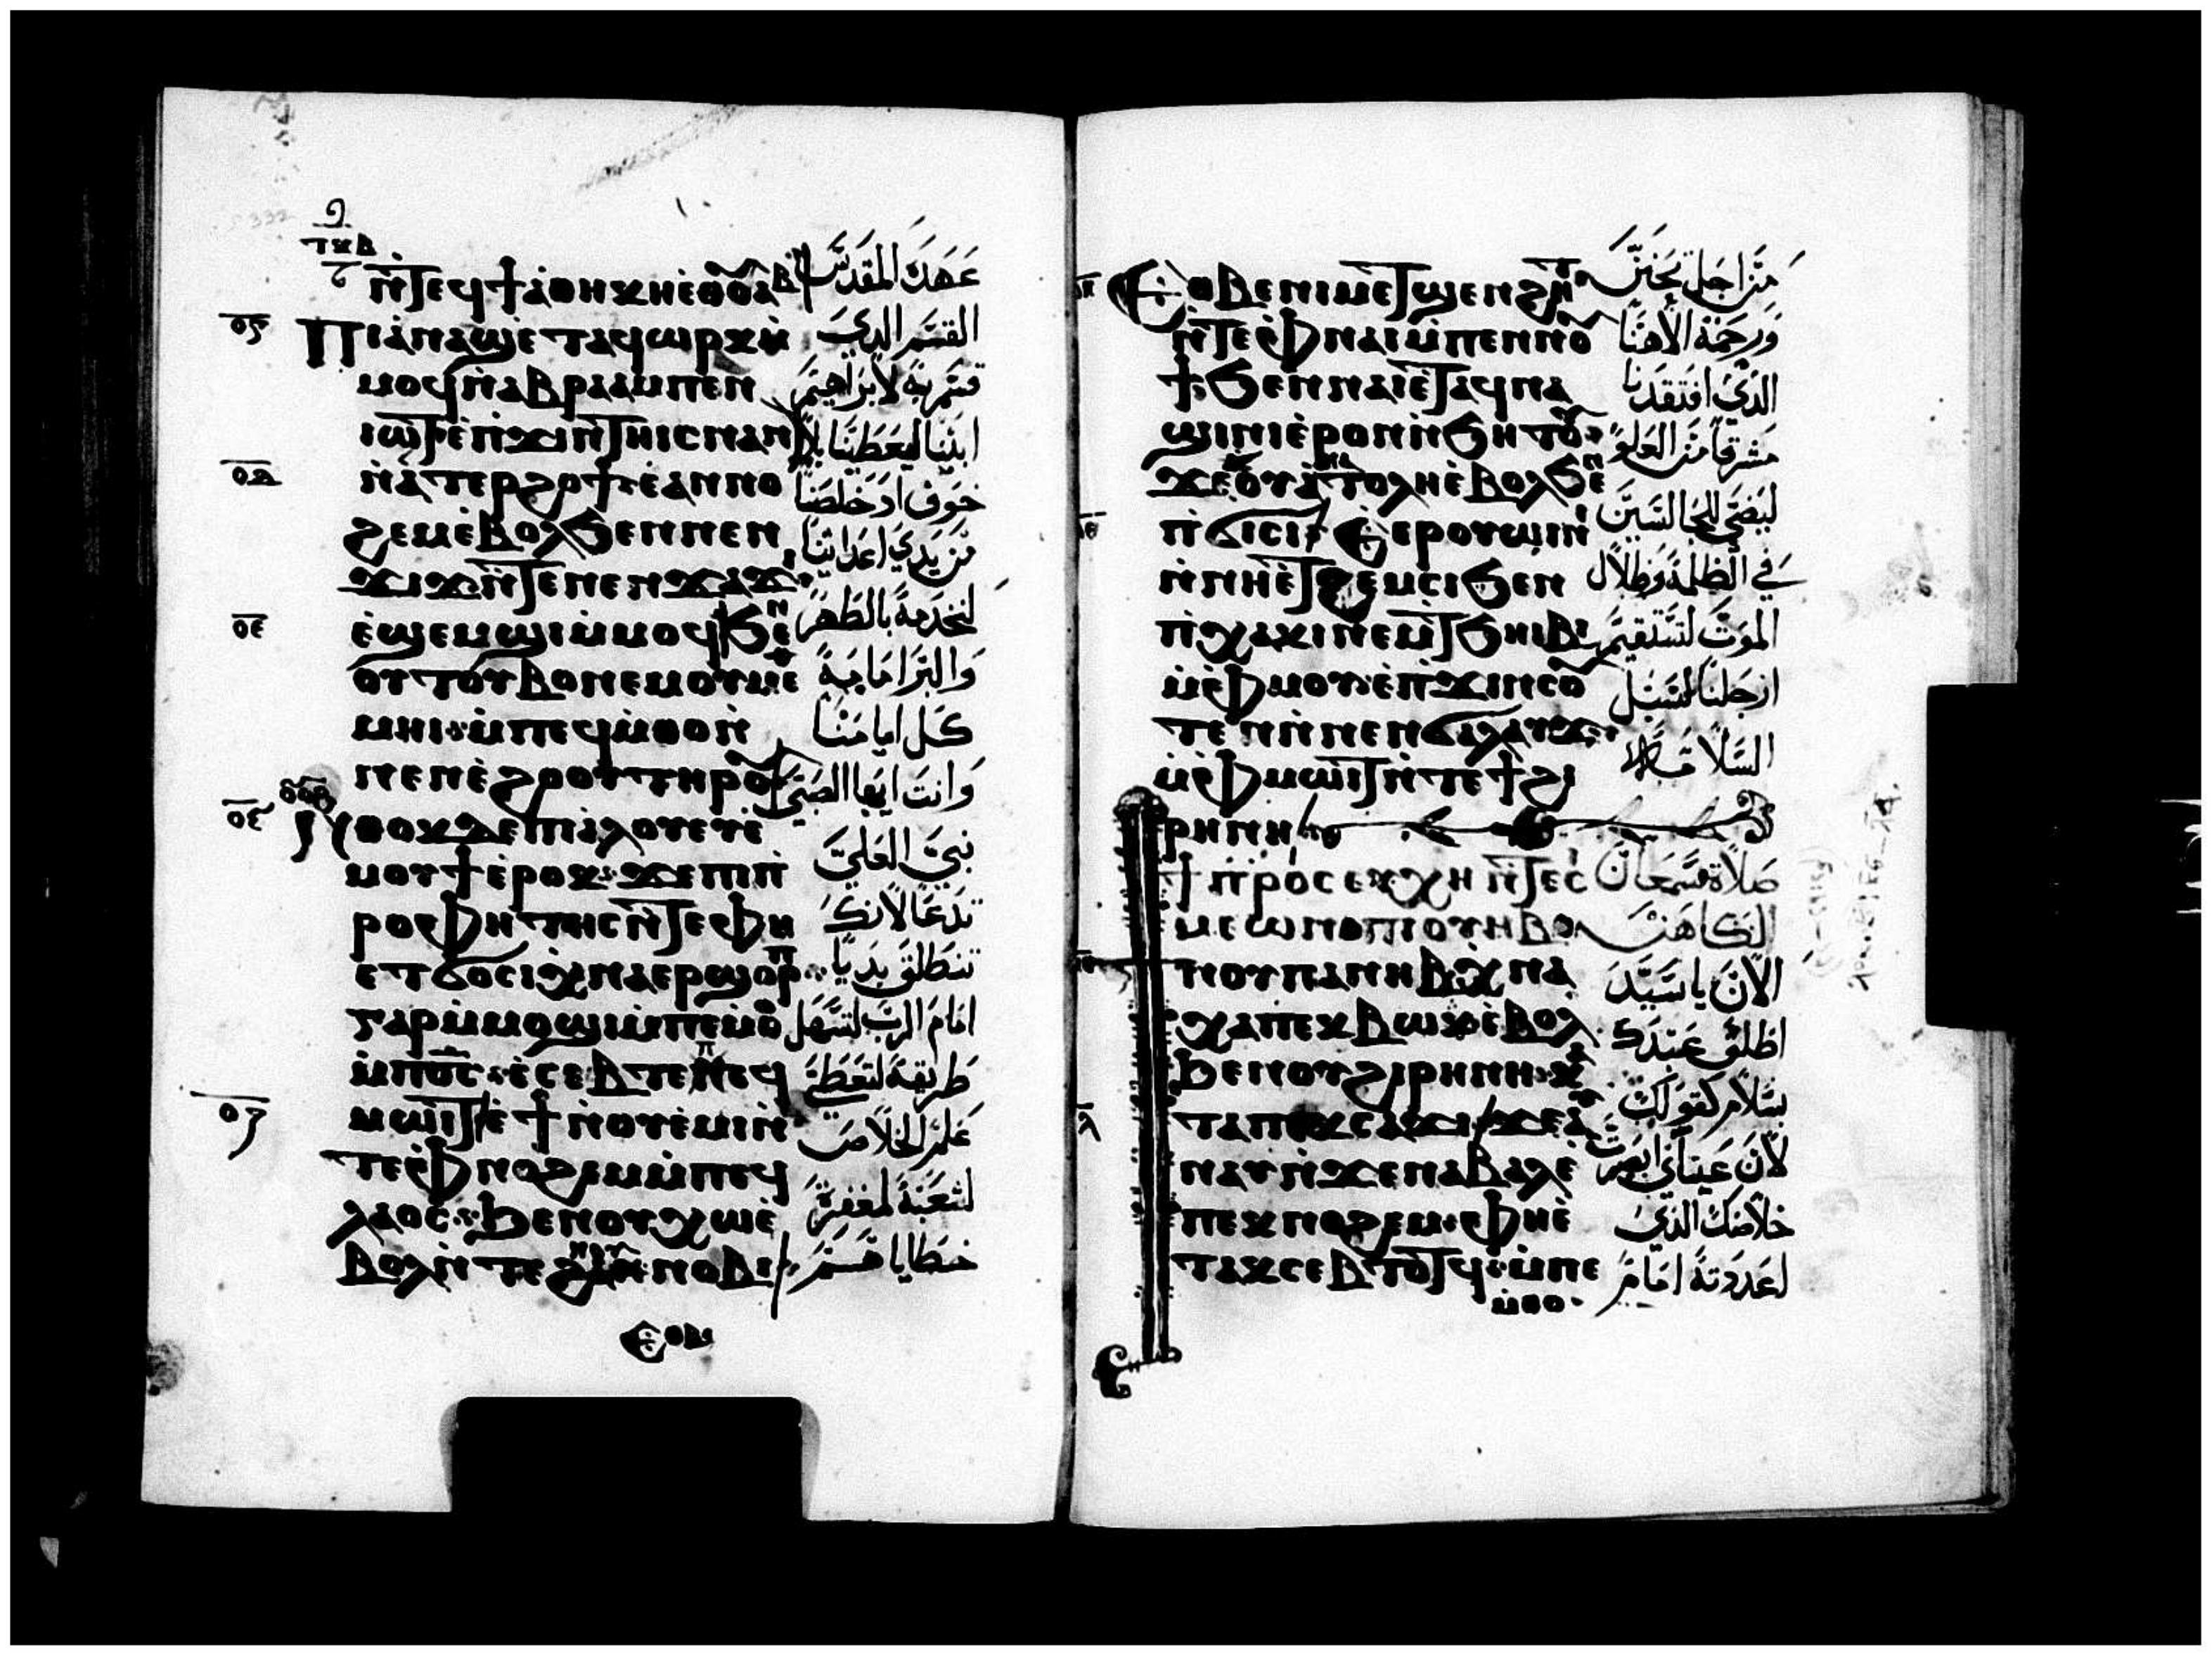 ⲧⲕⲃ
ⲛ̀ⲧⲉϥϯⲁ̀ⲑⲏⲕⲏ ⲉ̀ⲑⲟⲩⲁⲃ
ⲟⲅ
ⲡⲓⲁ̀ⲛⲁϣ ⲉ̀ⲧⲁϥⲱⲣⲕ ⲙ̀
ⲙⲟϥ ⲛ̀ⲁⲃⲣⲁⲁⲙ ⲡⲉⲛ
ⲓⲱⲧ ⲉ̀ⲡϫⲓⲛⲧⲏⲓⲥ ⲛⲁⲛ
ⲟⲇ
ⲛ̀ⲁⲧⲉⲣϩⲟϯ ⲉ̀ⲁⲛⲛⲟ
ϩⲉⲙ ⲉ̀ⲃⲟⲗϧⲉⲛ ⲛⲉⲛ
ϫⲓϫ ⲛ̀ⲧⲉ ⲛⲉⲛϫⲁϫⲓ
ⲟⲉ
ⲉ̀ϣⲉⲙϣⲓ ⲙ̀ⲙⲟϥ ϧⲉⲛ
ⲟⲩⲧⲟⲩⲃⲟ ⲛⲉⲙ ⲟⲩⲙⲉ
ⲑⲙⲏⲓ ⲙ̀ⲡⲉϥⲙ̀ⲑⲟ ⲛ̀
ⲛⲉⲛⲉ̀ϩⲟⲟⲩ ⲧⲏⲣⲟⲩ
ⲛ̀ⲑⲟⲕ ⲇⲉ ⲡⲓⲁ̀ⲗⲟⲩ ⲉⲩⲉ̀
ⲙⲟⲩϯ ⲉ̀ⲣⲟⲕ ϫⲉ ⲡⲓⲡ̀
ⲣⲟⲫⲏⲧⲏⲥ ⲛ̀ⲧⲉ ⲫⲏ
ⲉⲧϭⲟⲥⲓ ⲭ̀ⲛⲁⲉⲣϣⲟⲣⲡ
ⲅⲁⲣ ⲙ̀ⲙⲟϣⲓ ⲙ̀ⲡⲉⲙ̀ⲑⲟ
ⲙ̀ⲡⲟ̅ⲥ̅ ⲉ̀ⲥⲉⲃⲧⲉ ⲡⲉϥ
ⲟⲍ
ⲙⲱⲓⲧ ⲉ̀ϯ ⲛ̀ⲟⲩⲉ̀ⲙⲓ ⲛ̀
ⲧⲉ ⲫ̀ⲛⲟϩⲉⲙ ⲙ̀ⲡⲉϥ
ⲗⲁⲟⲥ ϧⲉⲛ ⲟⲩⲭⲱ ⲉ̀
ⲃⲟⲗ ⲛ̀ⲧⲉ ⲛⲟⲩⲛⲟⲃⲓ
ⲉⲑⲃⲉ
عهده المقدس
القسم الذي
قسم به لابراهيم
ابينا ليعطينا بلا
خوف اذ خلصنا
من يدي اعدائنا
لنخدمه بالطهر
والبر امامه
كل ايامنا
وانت ايها الصبي
نبي العلي
تدعا لانك
تنطلق بديا
امام الرب لتسهل
طريقه لتعطي
علم الخلاص
لشعبه لمغفرة
خطاياهم
ⲟⲏ
ⲉⲑⲃⲉ ⲛⲓⲙⲉⲧϣⲉⲛϩⲏⲧ
ⲛ̀ⲧⲉ ⲫ̀ⲛⲁⲓ ⲙ̀ⲡⲉⲛⲛⲟⲩ
ϯ ϧⲉⲛ ⲛⲁⲓ ⲉ̀ⲧⲁϥⲛⲁ
ϣⲓⲛⲓ ⲉ̀ⲣⲟⲛ ⲛ̀ϧⲏⲧⲟⲩ
ϫⲉ ⲟⲩⲁ̀ⲛⲁⲧⲟⲗⲏ ⲉ̀ⲃⲟⲗϧⲉⲛ
ⲟⲑ
ⲡ̀ϭⲓⲥⲓ ⲉ̀ⲉⲣⲟⲩⲱⲓⲛⲓ
ⲛ̀ⲛⲏⲉⲧϩⲉⲙⲥⲓ ϧⲉⲛ
ⲡ̀ⲭⲁⲕⲓ ⲛⲉⲙ ⲧ̀ϧⲏⲓⲃⲓ
ⲙ̀ⲫ̀ⲙⲟⲩ ⲉ̀ⲡ̀ϫⲓⲛⲥⲟⲩ
ⲧⲉⲛ ⲛ̀ⲛⲉⲛϭⲁⲗⲁⲩϫ
ⲙ̀ⲫ̀ⲙⲱⲓⲧ ⲛ̀ⲧⲉ ϯϩⲓ
ⲣⲏⲛⲏ
ϯⲡ̀ⲣⲟⲥⲉⲩⲭⲏ ⲛ̀ⲧⲉ ⲥⲩ
ⲙⲉⲱⲛ ⲡⲓⲟⲩⲏⲃ
ϯⲛⲟⲩ ⲡⲁⲛⲏⲃ ⲭ̀ⲛⲁ
ⲭⲁ ⲡⲉⲕⲃⲱⲕ ⲉ̀ⲃⲟⲗ
ϧⲉⲛ ⲟⲩϩⲓⲣⲏⲛⲏ ⲕⲁ
ⲗ
ⲧⲁ ⲡⲉⲕⲥⲁϫⲓ ϫⲉ ⲁⲩ
ⲛⲁⲩ ⲛ̀ϫⲉ ⲛⲁⲃⲁⲗ ⲉ̀
ⲡⲉⲕⲛⲟϩⲉⲙ ⲫⲏ ⲉ̀
ⲧⲁⲕⲥⲉⲃⲧⲱⲧϥ ⲙ̀ⲡⲉ
ⲙ̀ⲑⲟ
من اجل تحنن
ورحمة الاهنا
الذي افتقدنا
مشرقا من العلو
ليضي للجالسين
في الظلمة وظلال
الموت لتستقيم
ارجلنا لسبل
السلامة
صلاة سمعان
الكاهن
الان يا سيد
اطلق عبدك
بسلام كقولك
لان عيناني ابصرت
خلاصك الذي
اعددته امام